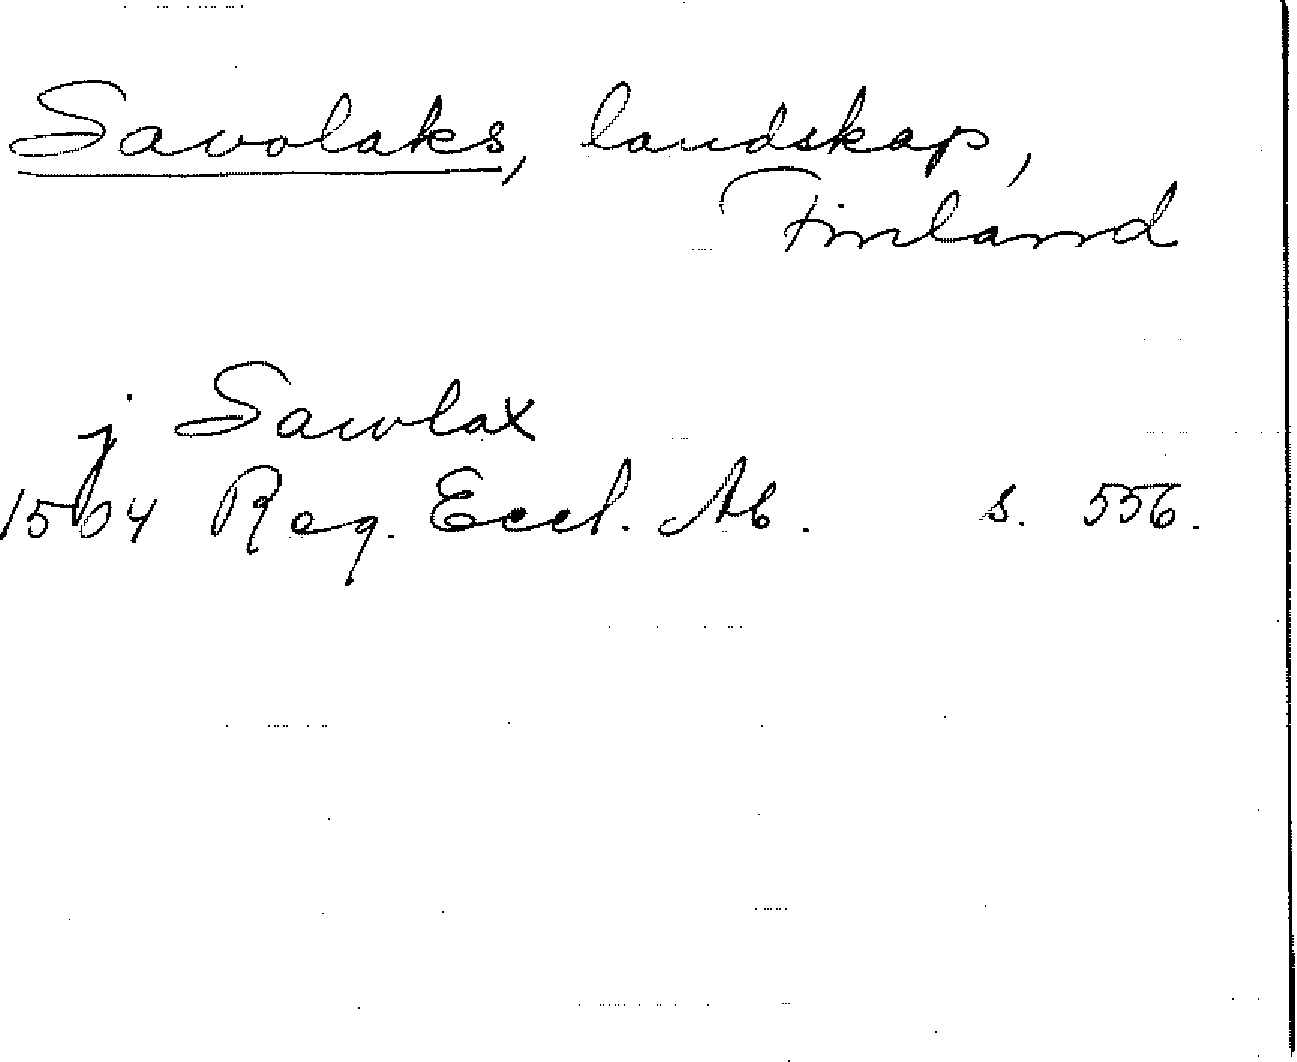 Savolaks, landskap,
Finland
j Sawlax
1504 Reg. Eccl. Ab. s. 556.